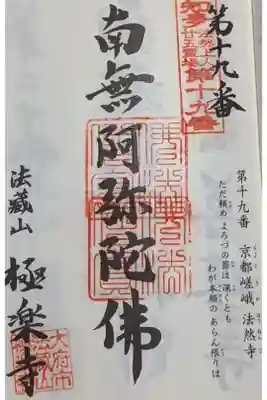 第十九番
第十九番 京都嵯峨 法然寺
ただ頼め よろづの罪は 深くとも
わが本願の あらん限りは
知多
廿五霊場
第十九番
南無阿弥陀佛
法藏山 極楽寺
大府市